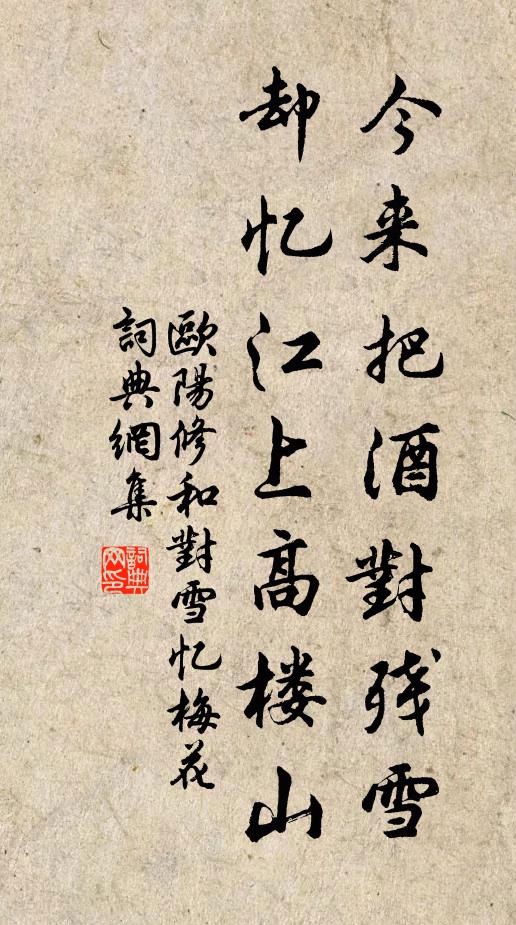 今来把酒對残雪
却忆江上高楼山
歐陽修和對雪忆梅花
詞典網集
詞典网印